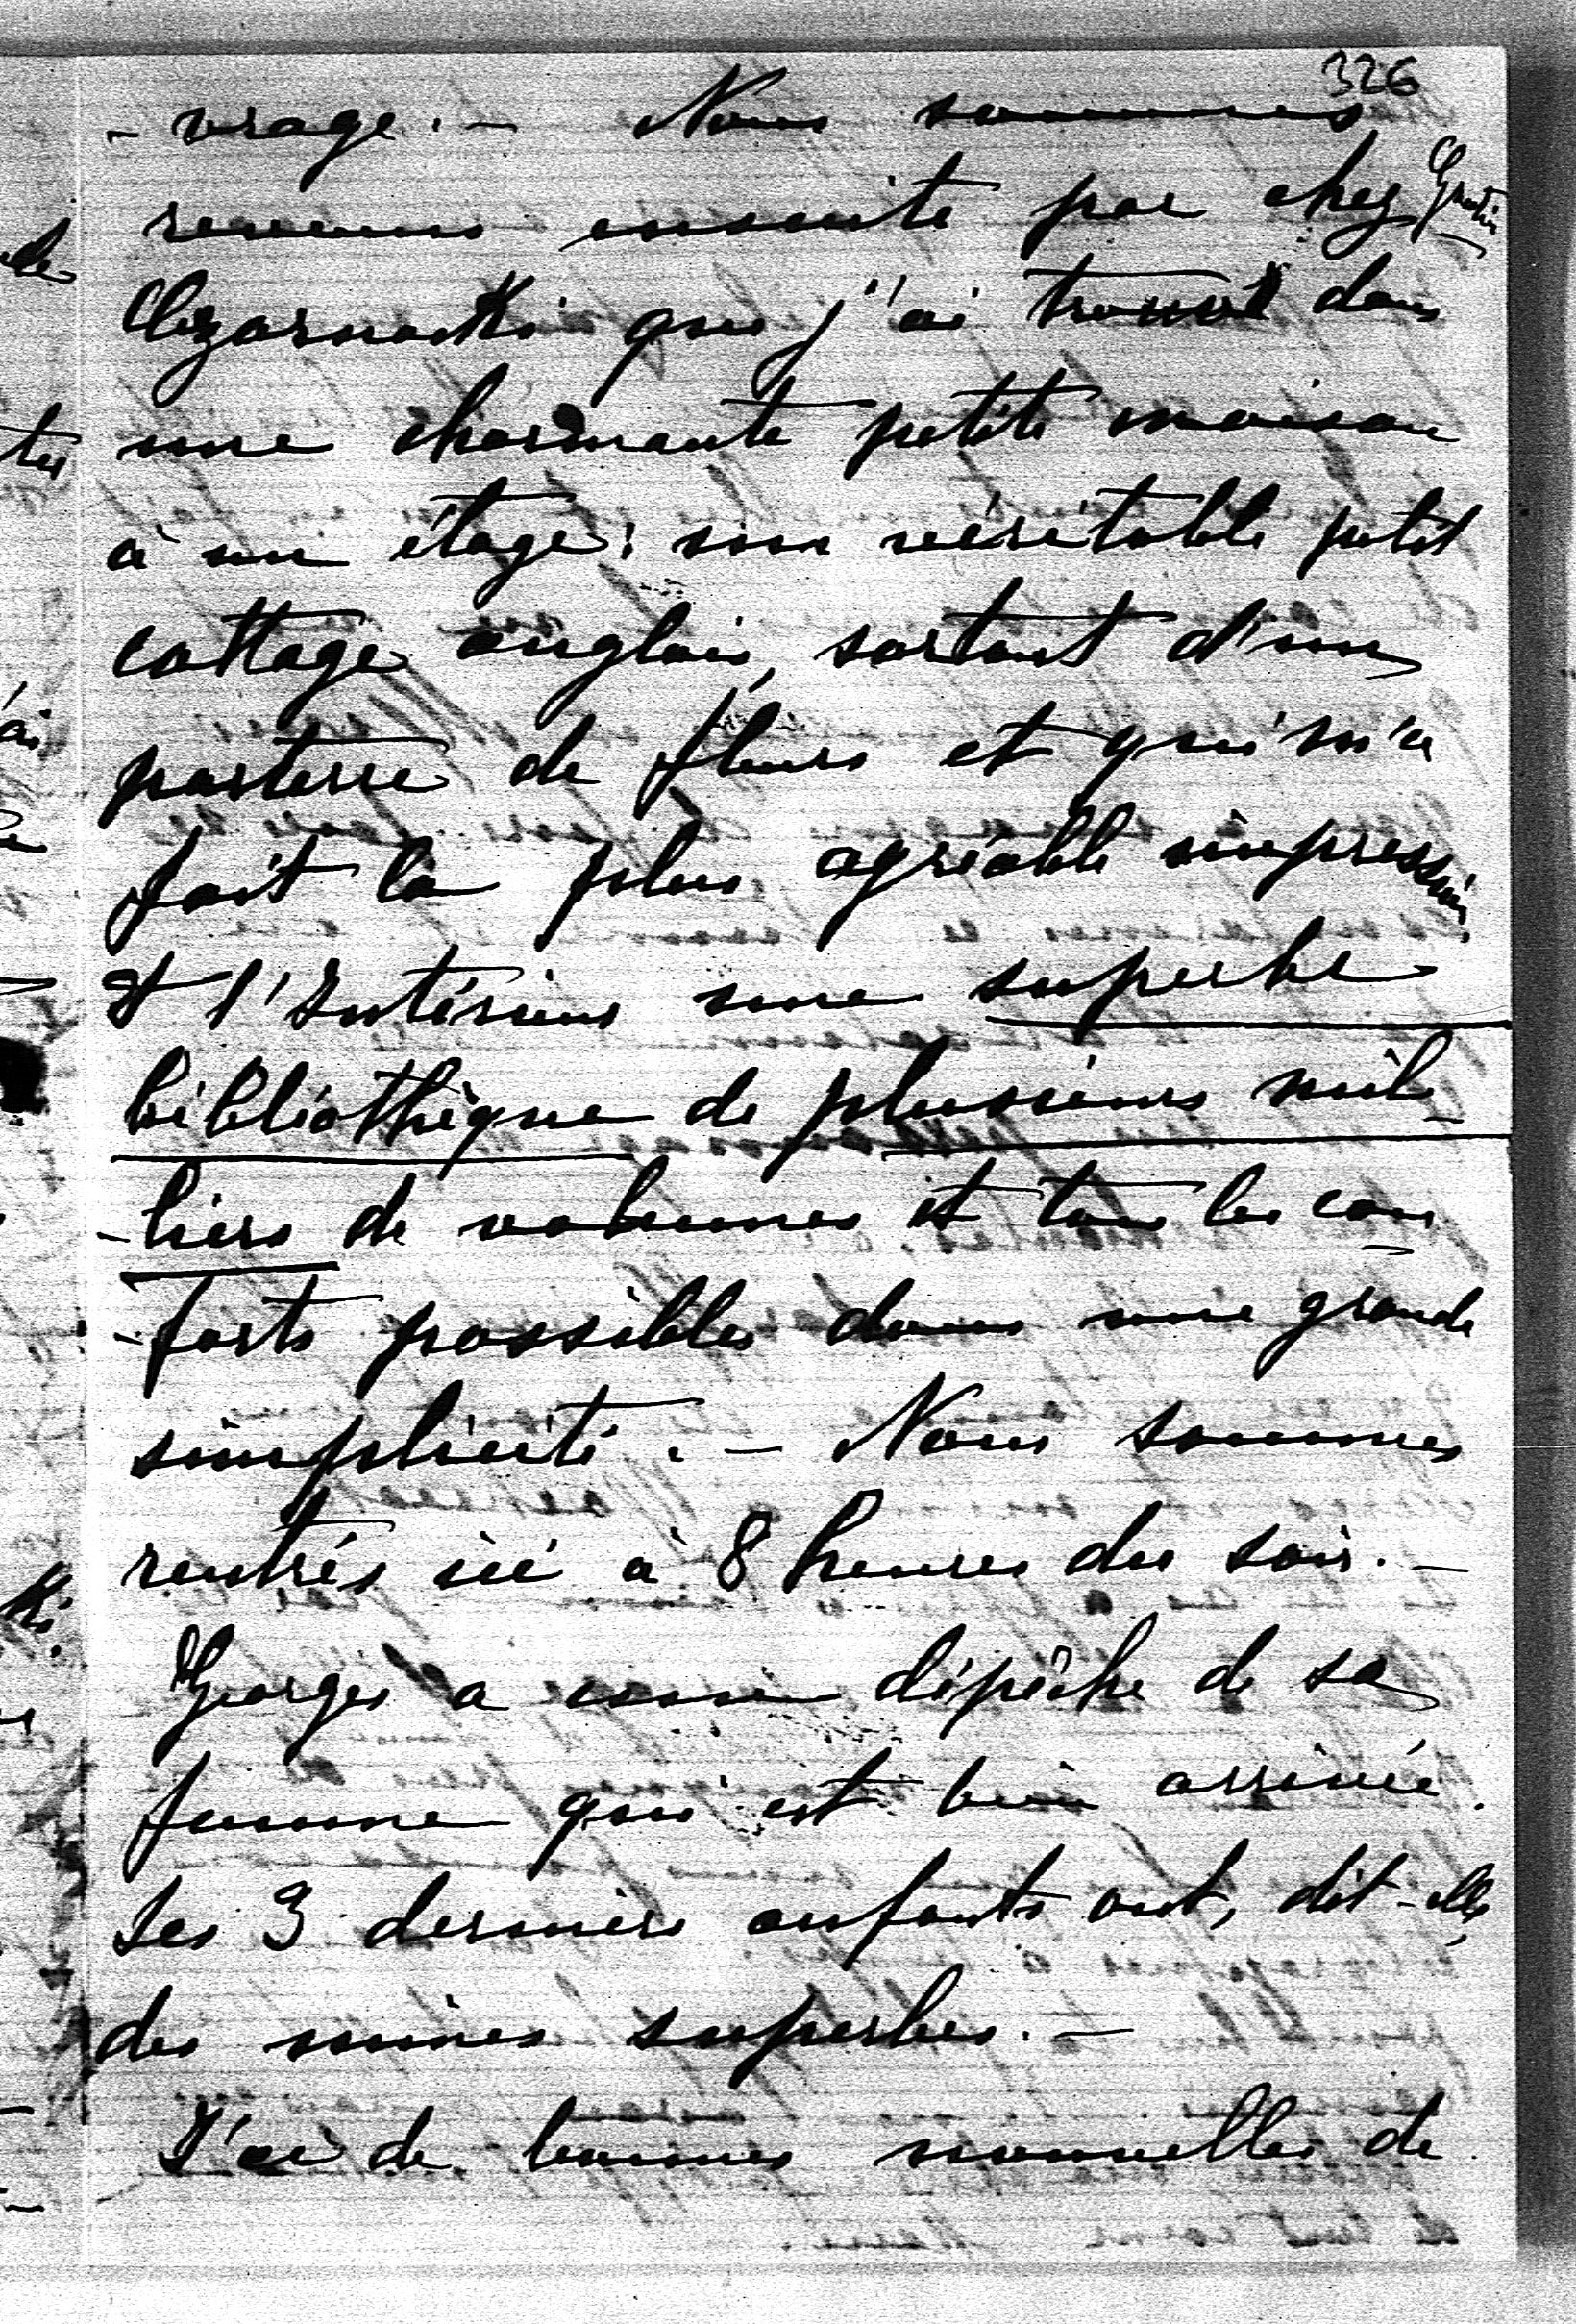 326
- vrage. - Nous sommes
revenus ensuite par chez
Czarnecki que j'ai trouvé dans
une charmante petite maison
à un étage: un véritable petit
cottage anglais, sortant d'un
parterre de fleurs et qui m'a
fait la plus agréable impression,
et l'Intérieur une superbe
bibliothèque de plusieurs mil-
-liers de volumes et tous les con-
-forts possibles dans une grande
simplicité. - Nous sommes
rentrés ici à 8 heures du soir. -
Georges a une dépêche de sa
femme qui est bien arrivée.
Ses 3 derniers enfants ont, dit-elle,
des mines superbes. -
J'ai de bonnes nouvelles de